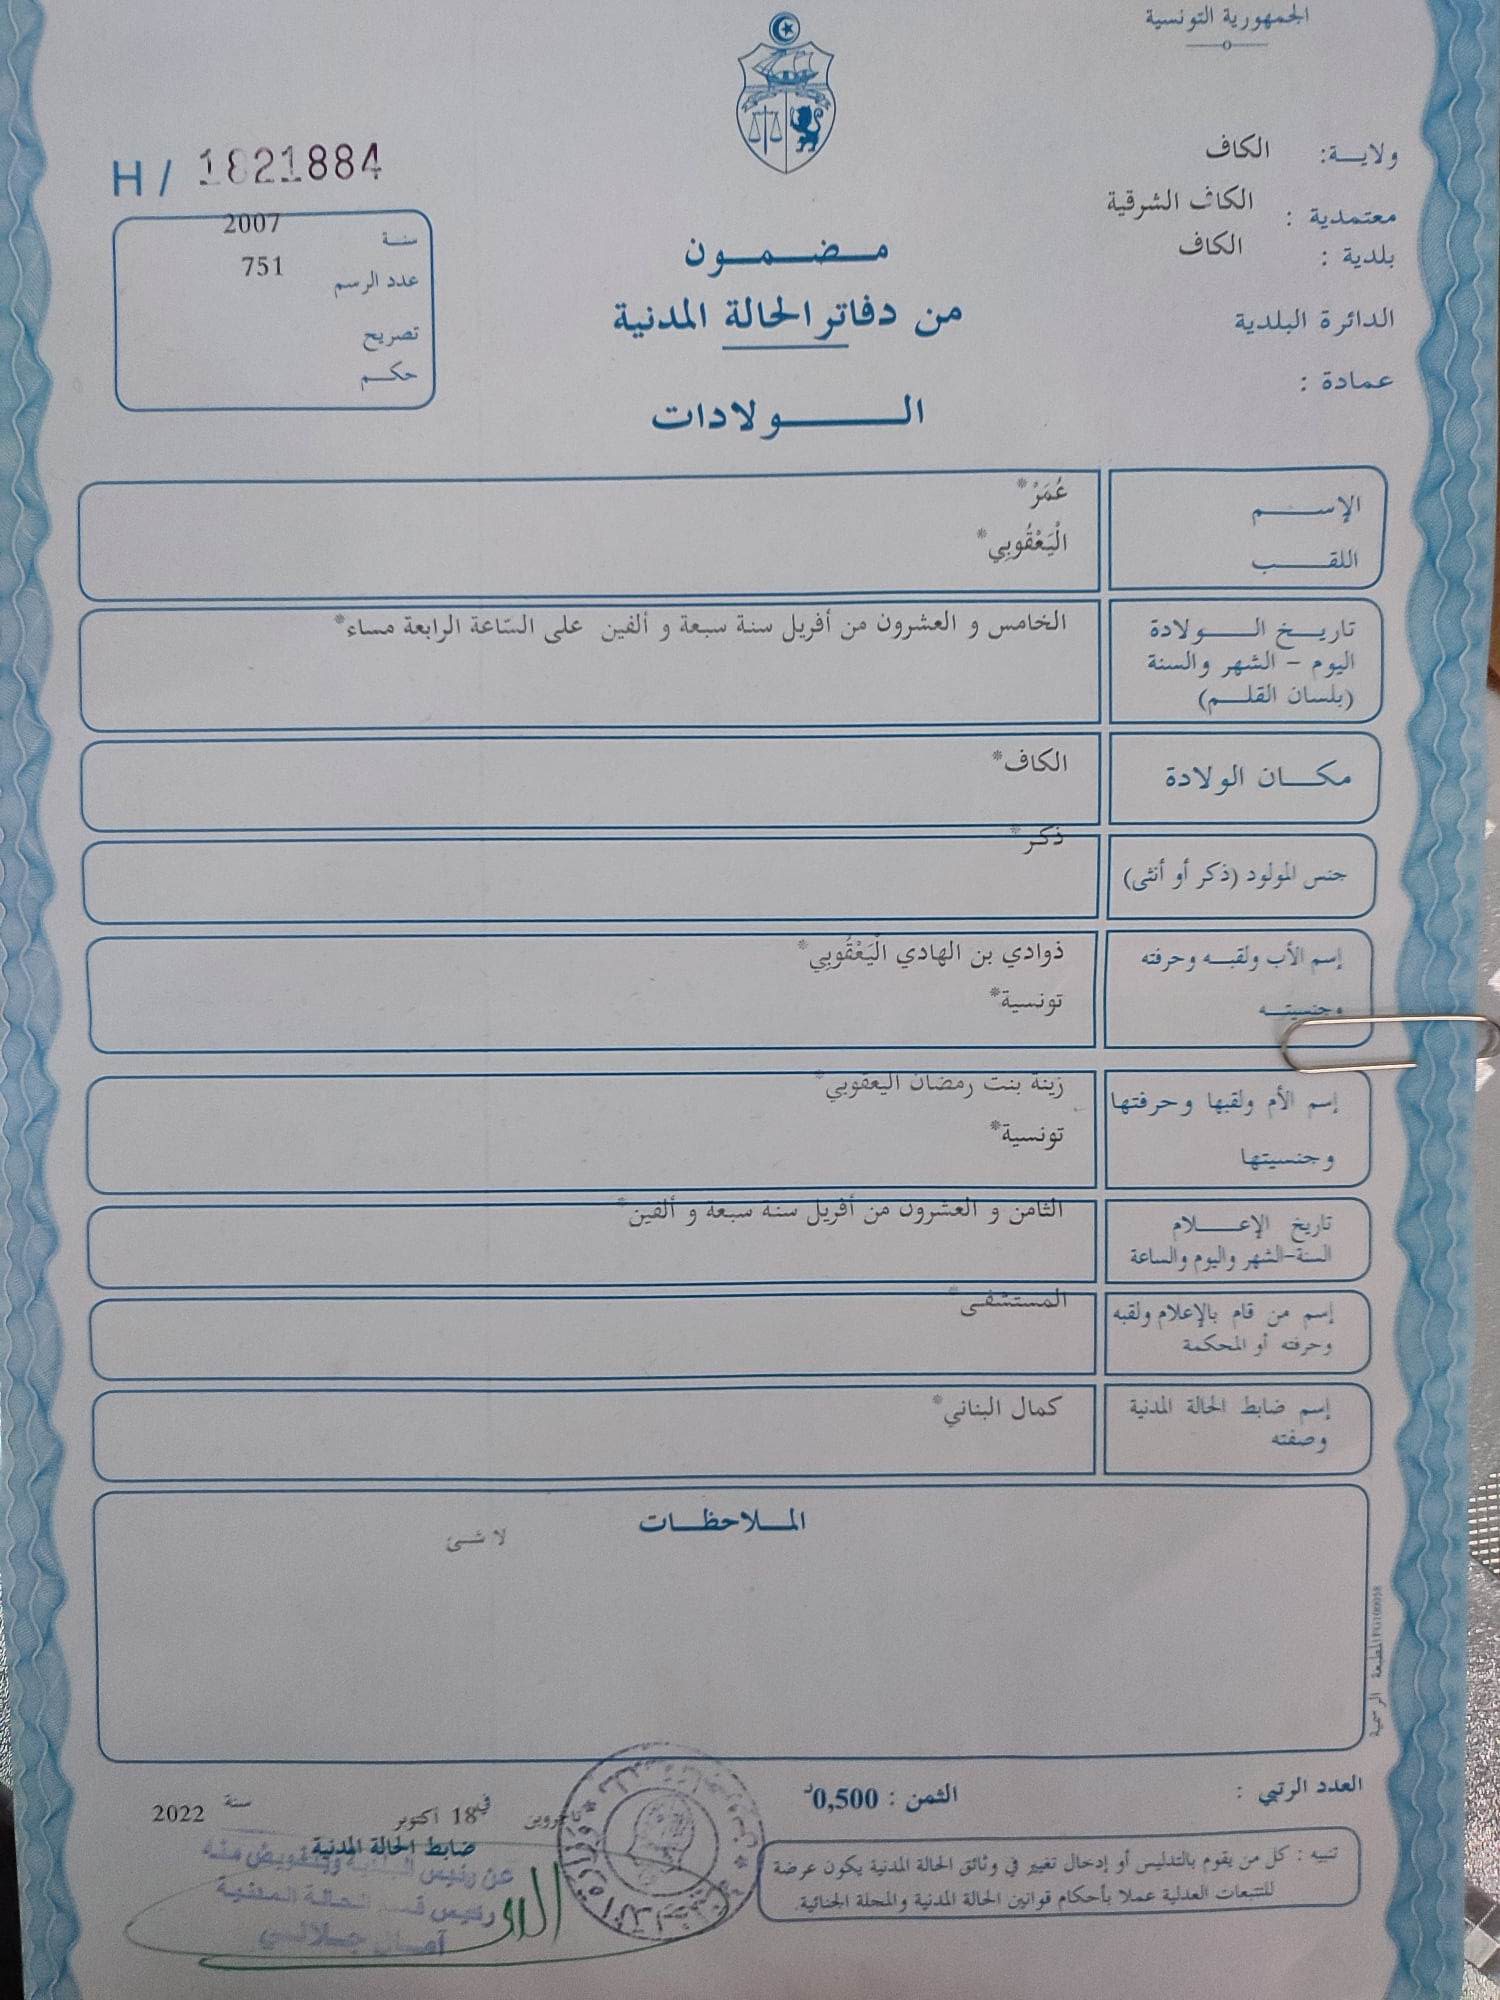 الجمهورية التونسية
ولايـــة: الكاف
معتمدية : الكاف الشرقية
بلدية : الكاف
الدائرة البلدية
عمادة :
H / 1821884
سنـة 2007
عدد الرسم 751
تصريح
حكـــم
مـــضـــمـــون
من دفاتر الحالة المدنية
الـــــولادات
الإســــــم عُمَرْ*
اللقــــــب الْيَعْقُوبِي*
تاريـــخ الــــولادة
اليوم - الشهر والسنة
(بلسان القلـــم)
الخامس و العشرون من أفريل سنة سبعة و ألفين على السّاعة الرابعة مساء*
مكـــان الولادة الكاف*
جنس المولود (ذكر أو أنثى) ذكر*
إسم الأب ولقبـــه وحرفته ذوادي بن الهادي الْيَعْقُوبِي*
وجنسيتـــه تونسية*
إسم الأم ولقبها وحرفتها زينة بنت رمضان اليعقوبي*
وجنسيتها تونسية*
تاريخ الإعـــــلام
السنة-الشهر واليوم والساعة
الثامن و العشرون من أفريل سنة سبعة و ألفين*
إسم من قام بالإعلام ولقبه
وحرفته أو المحكمة
المستشفى*
إسم ضابط الحالة المدنية
وصفته
كمال البناني*
المـــلاحظـــات
لا شئ
المطبعة الرسمية
العدد الرتبي :
الثمن : 0,500د
تاجروين في 18 أكتوبر سنة 2022
ضابط الحالة المدنية
عن رئيس البلدية وبتفويض منه
رئيس قسم الحالة المدنية
آمال جلالي
تنبيه : كل من يقوم بالتدليس أو إدخال تغيير في وثائق الحالة المدنية يكون عرضة
للتتبعات العدلية عملا بأحكام قوانين الحالة المدنية والمجلة الجنائية.